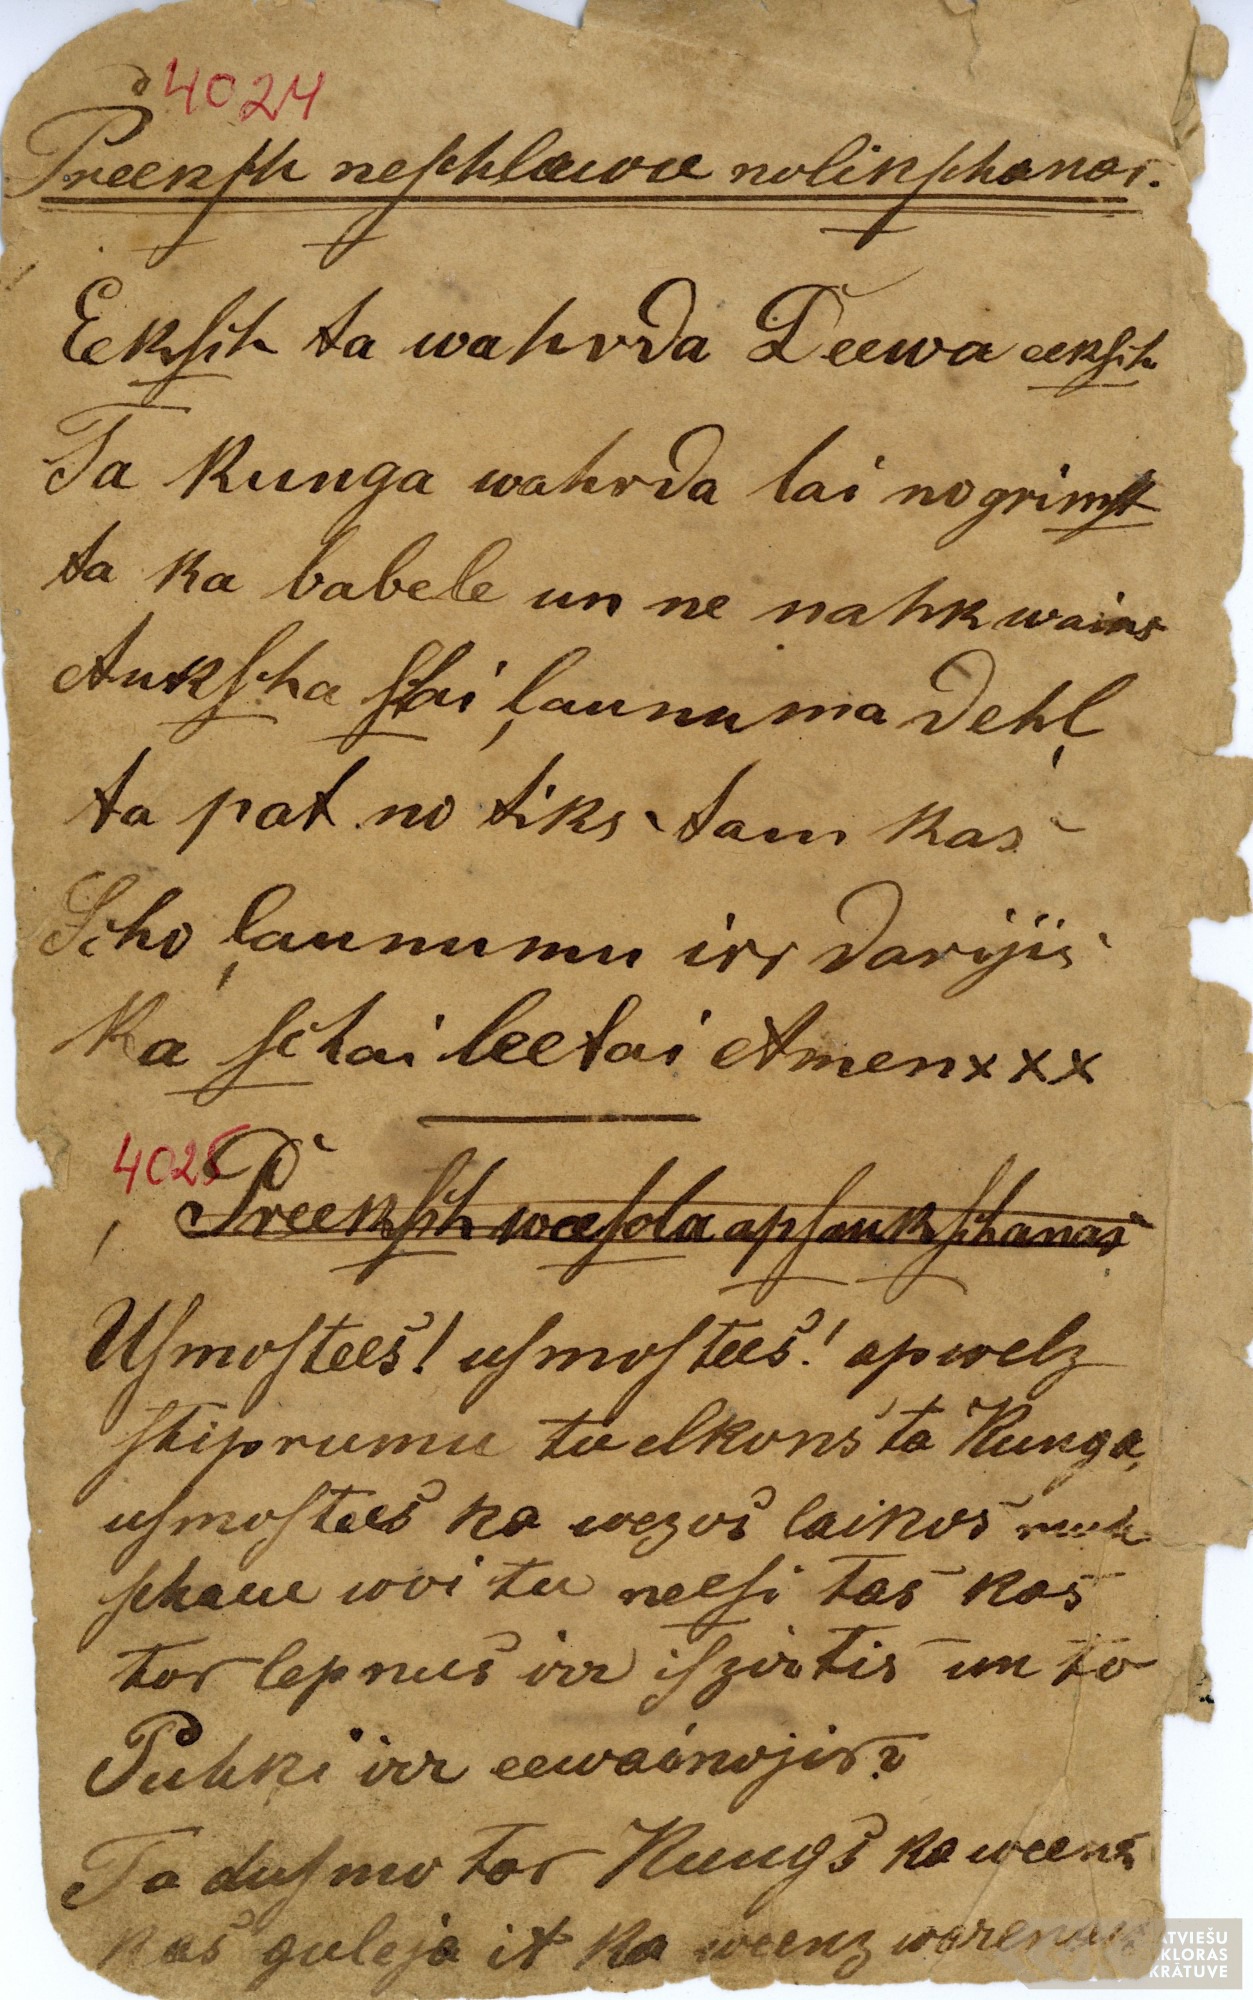 4024
Preeksch neschlawu nolikschanas.
Eeksch ta wahrda Deewa eeksch
Ta Kunga wahrda lai nogrimst
ta ka babele un ne nahk wairs
Aukscha schai ļaunuma dehļ
ta pat no tiks tam kas
Scho ļaunumu irr darijis
ka schai leetai Amen x x x
4025
Preeksch wesela apsaukschanas
Usmostees! usmostees! apwelz
stiprumu tu elkons ta Kunga,
usmostees ka wezos laikos muh
schau woi tu neesi tas kas
tos lepnus irr iszirtis un to
Puhki irr eewainojis?
Ta dusmo tas Kungs ka weens
kas guleja it ka weenz warenais
LATVIEŠU
FOLKLORAS
KRĀTUVE